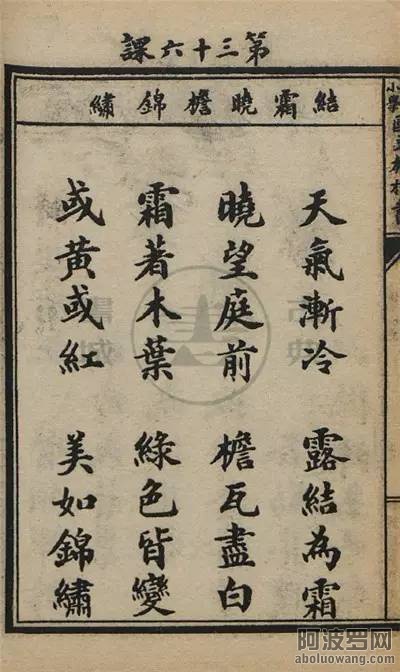 第三十六課
結霜曉檐錦繡
天氣漸冷　露結為霜
曉望庭前　檐瓦盡白
霜著木葉　綠色皆變
或黃或紅　美如錦繡
阿波罗网
aboluowang.com